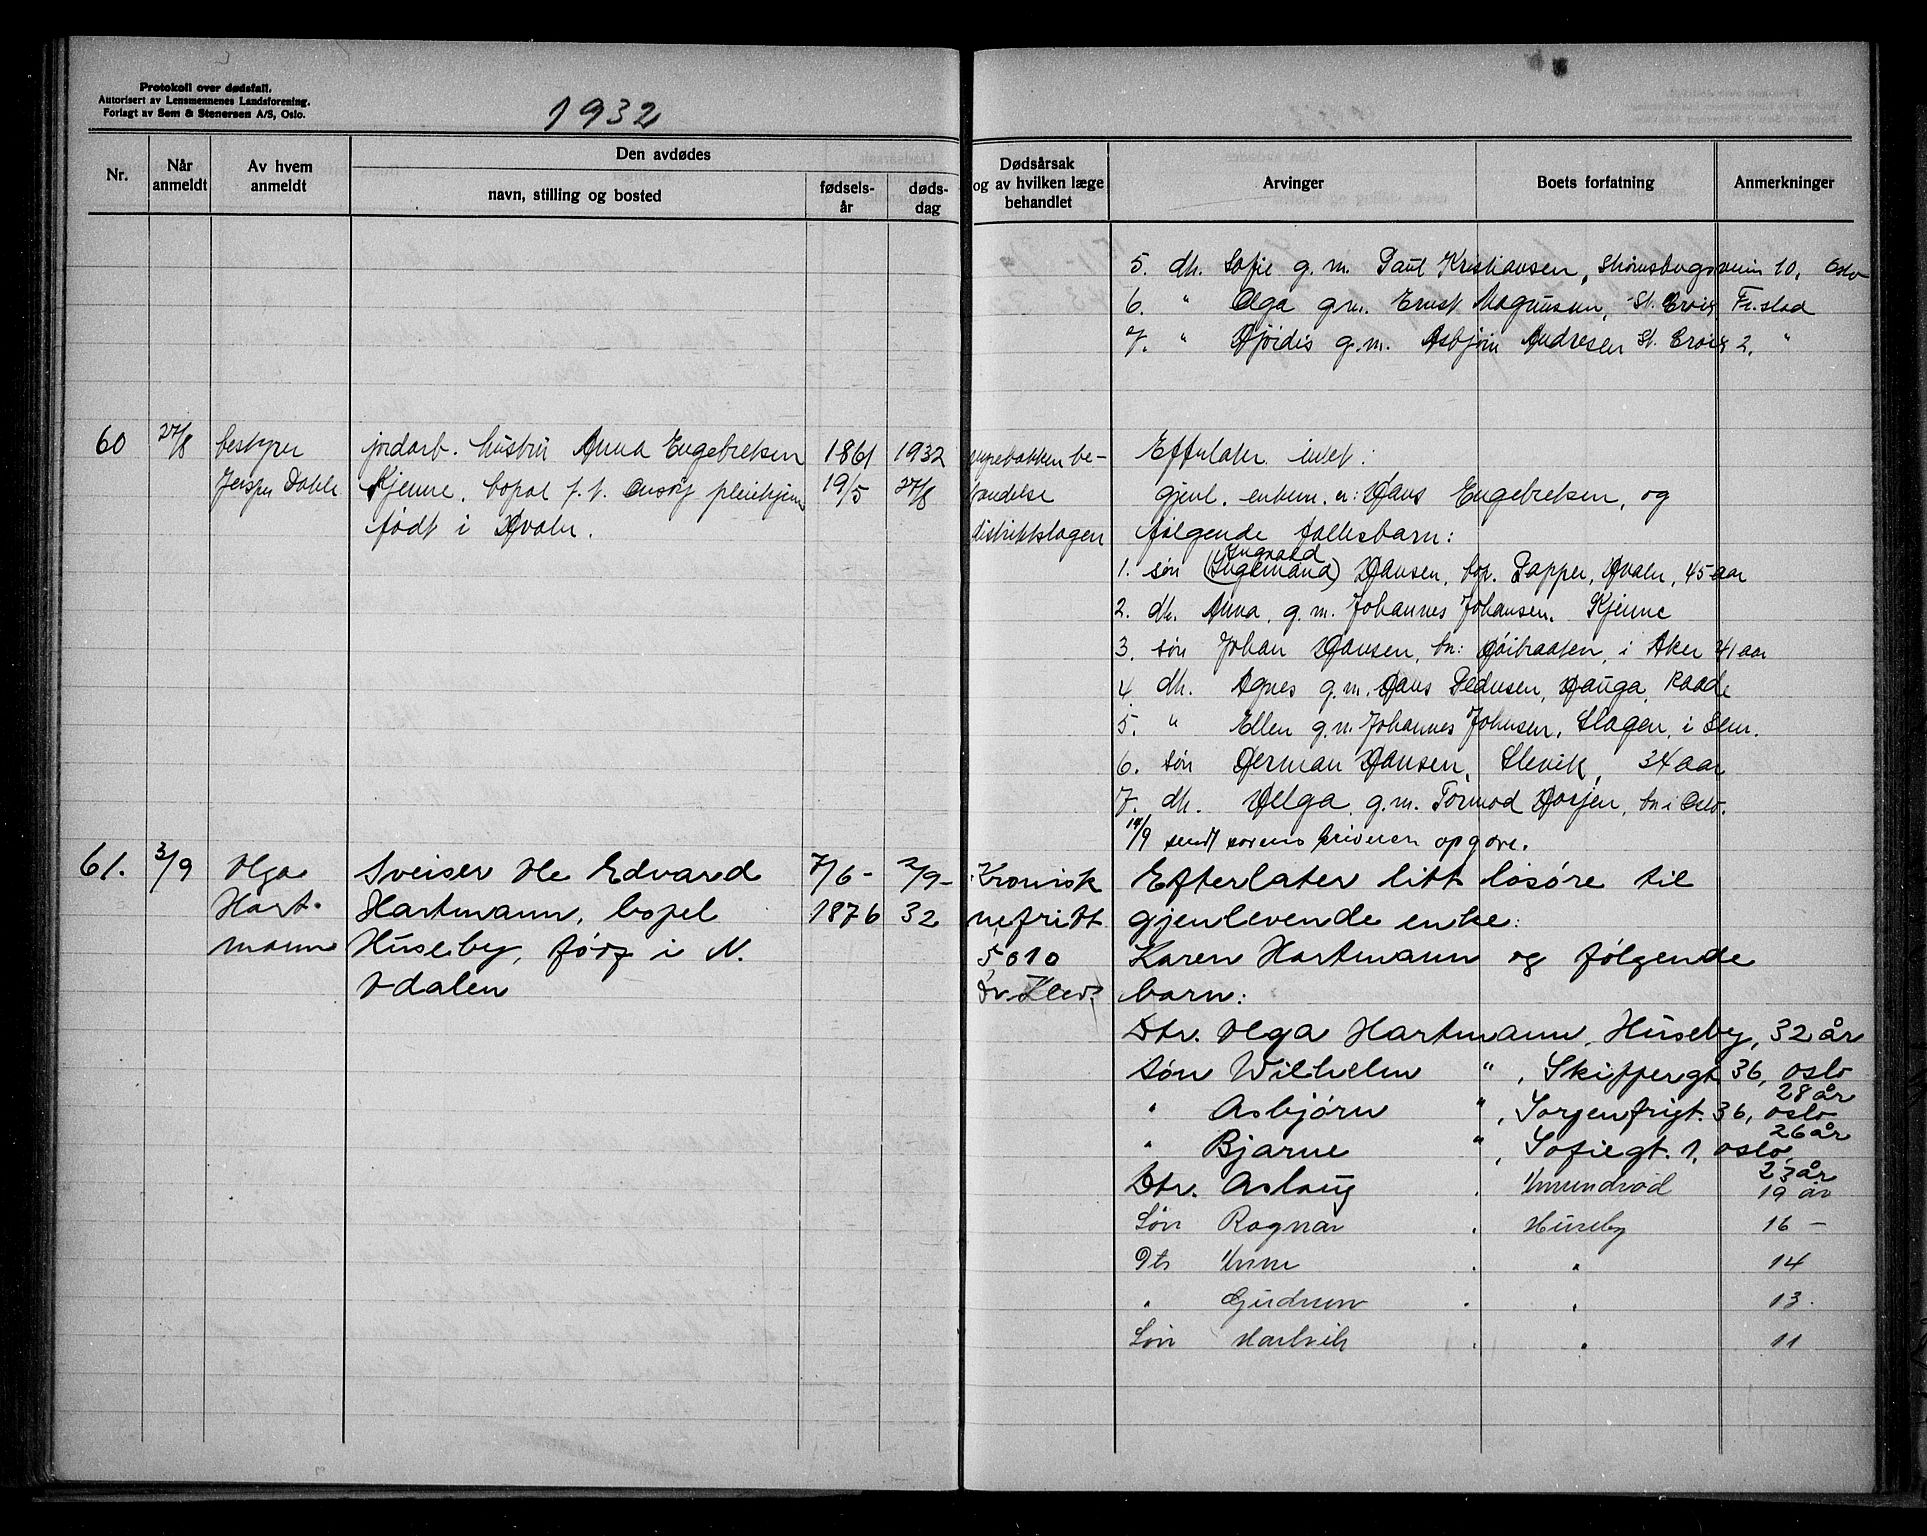 Protokoll over dødsfall.
Autorisert av Lensmennenes Landsforening.
Forlagt av Sem & Stenersen A/S, Oslo.
1932
Nr.
Når anmeldt
Av hvem anmeldt
Den avdødes
navn, stilling og bosted
fødsels-år
døds-dag
Dødsårsak og av hvilken læge behandlet
Arvinger
Boets forfatning
Anmerkninger
5. dtr. Sofie g.m. Paul Kristiansen, 10, Oslo
6. " Olga g.m. Ernst Magnussen, St. Croix Fr.stad
7. " Hjørdis g.m. Asbjørn Andresen St. Croix 2, "
60
27/8
bestyrer
Jesper Dahle
jordarb. hustru Anna Engebretsen
Kjenne, bopel f.t. Onsøy pleiehjem
født i Hvaler.
1861
19/5
1932
27/8
be-
handelse
distriktslægen
Efterlater intet:
gjenl. enkem. er: Hans Engebretsen, og
følgende fellesbarn:
Ingvald
1. søn (Ingemand) Hansen, bop. Papper, Hvaler, 45 aar
2. dtr. Anna, g.m. Johannes Johansen, Kjenne
3. søn Johan Hansen, bo: Høibraaten, i Aker 41 aar
4. dtr. Agnes g.m. Hans Pedersen, Hauga, Raade
5. " Ellen g.m. Johannes Johnsen, Slagen, i Sem.
6. søn Herman Hansen, Slevik, 34 aar
7. dtr. Helga g.m. Tormod Horjen, bo i Oslo.
14/9 sendt sorenskriveren opgave.
61.
3/9
Olga
Hart-
mann
Sveiser Ole Edvard
Hartmann, bopel
Huseby, født i N.
Odalen
7/6-
1876
2/9-
32
Kronisk
nefritt
Dr.
Efterlater litt løsøre til
gjenlevende enke:
Karen Hartmann og følgende
barn:
Dtr. Olga Hartmann, Huseby, 32 år
søn Wilhelm " , Skippergt 36, Oslo
28 år
" Asbjørn " , Sorgenfrigt. 36, Oslo
26 år
" Bjarne " , Sofiegt. 1, Oslo,
23 år
Dtr. Aslaug " Ommundrød 19 år
Søn Ragnar " Huseby 16 -
Dtr Unni " " 14
" Gudrun " " 13.
Søn Hartvik " " 11